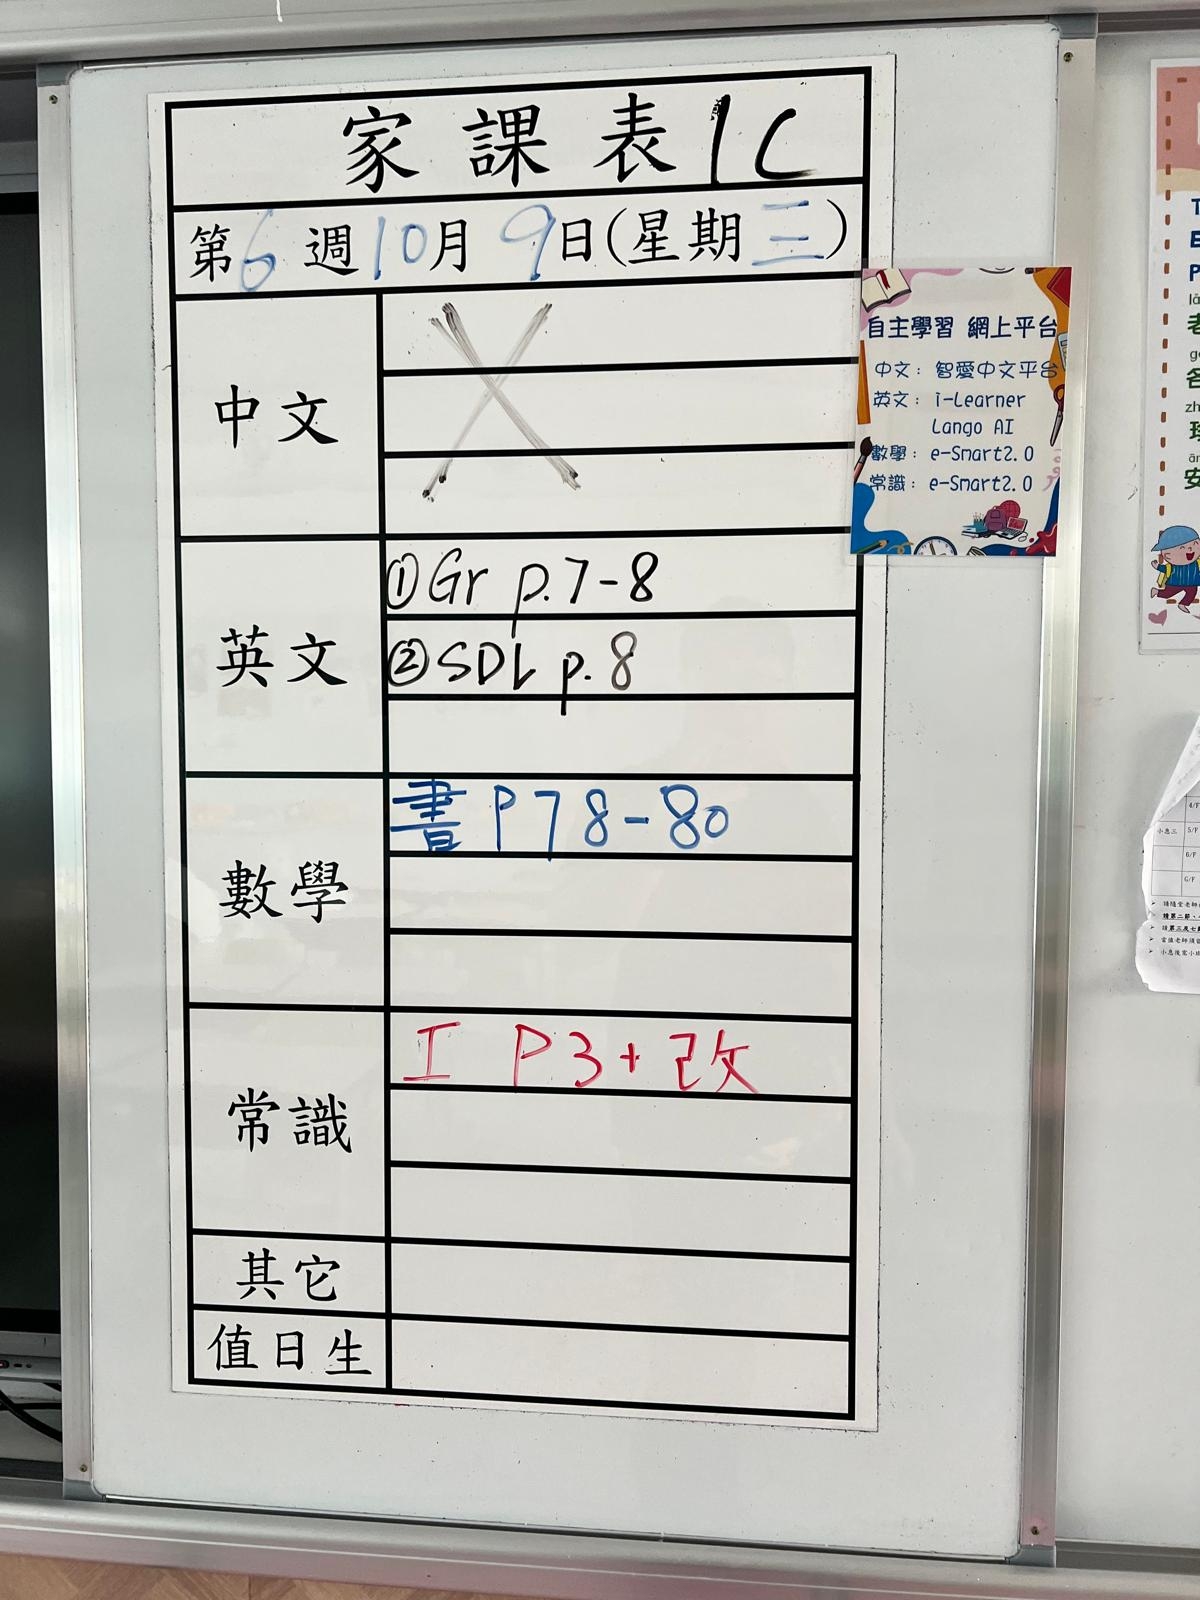 家課表 1C
第6週10月9日(星期三)
中文
英文
①Gr p.7-8
②SDL p.8
數學
書 P78-80
常識
工 P3+改
其它
值日生
自主學習 網上平台
中文：智愛中文平台
英文：i-Learner
Lango AI
數學：e-Smart2.0
常識：e-Smart2.0
小息三
4/F
5/F
6/F
G/F